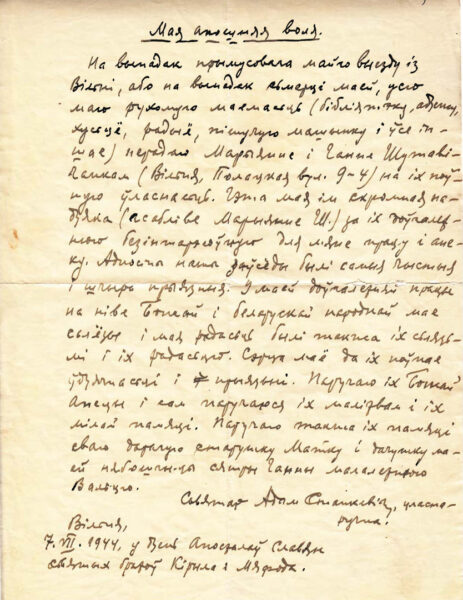 Мая апошняя воля.
На выпадак прымусовага майго выезду із
Вільні, або на выпадак сьмерці маей, усю
маю рухомую маемасьць (бібліятэку, адзеньне,
радыё, пішучую машынку і ўсе ін-
шае) перадаю Марыяньне і Ганне Шутаві-
чанкам (Вільня, Полацкая вул. 9-4) на іх поў-
ную ўласнасьць. Гэта мая ім скромная па-
дзяка (асабліва Марыяньне Ш.) за іх доўгалет-
нюю безінтарэсоўную для мяне працу і апе-
ку. Адносіны нашы заўсёды былі самыя чыстыя
і шчыра прыязныя. У маей доўгалетняй працы
на ніве Божай і беларускай народнай мае
сьлёзы і мая радасьць былі такжа іх сьлязь-
мі і іх радасьцяй. Сэрца маё да іх поўнае
ўдзячнасьці і прыязьні. Паручаю іх Божай
Апецы і сам паручаюся іх малітвам і іх
мілай памяці. Паручаю такжа іх памяці
сваю дарагую старушку Матку і дачушку ма-
ей нябошчыцы сястры Ганны малалетнюю
Сьвятар Адам Станкевіч, уласна-
ручна.
Вільня,
7.VII.1944, у Дзень Апосталаў Славян
сьвятых братоў Кірыла і Мятода.